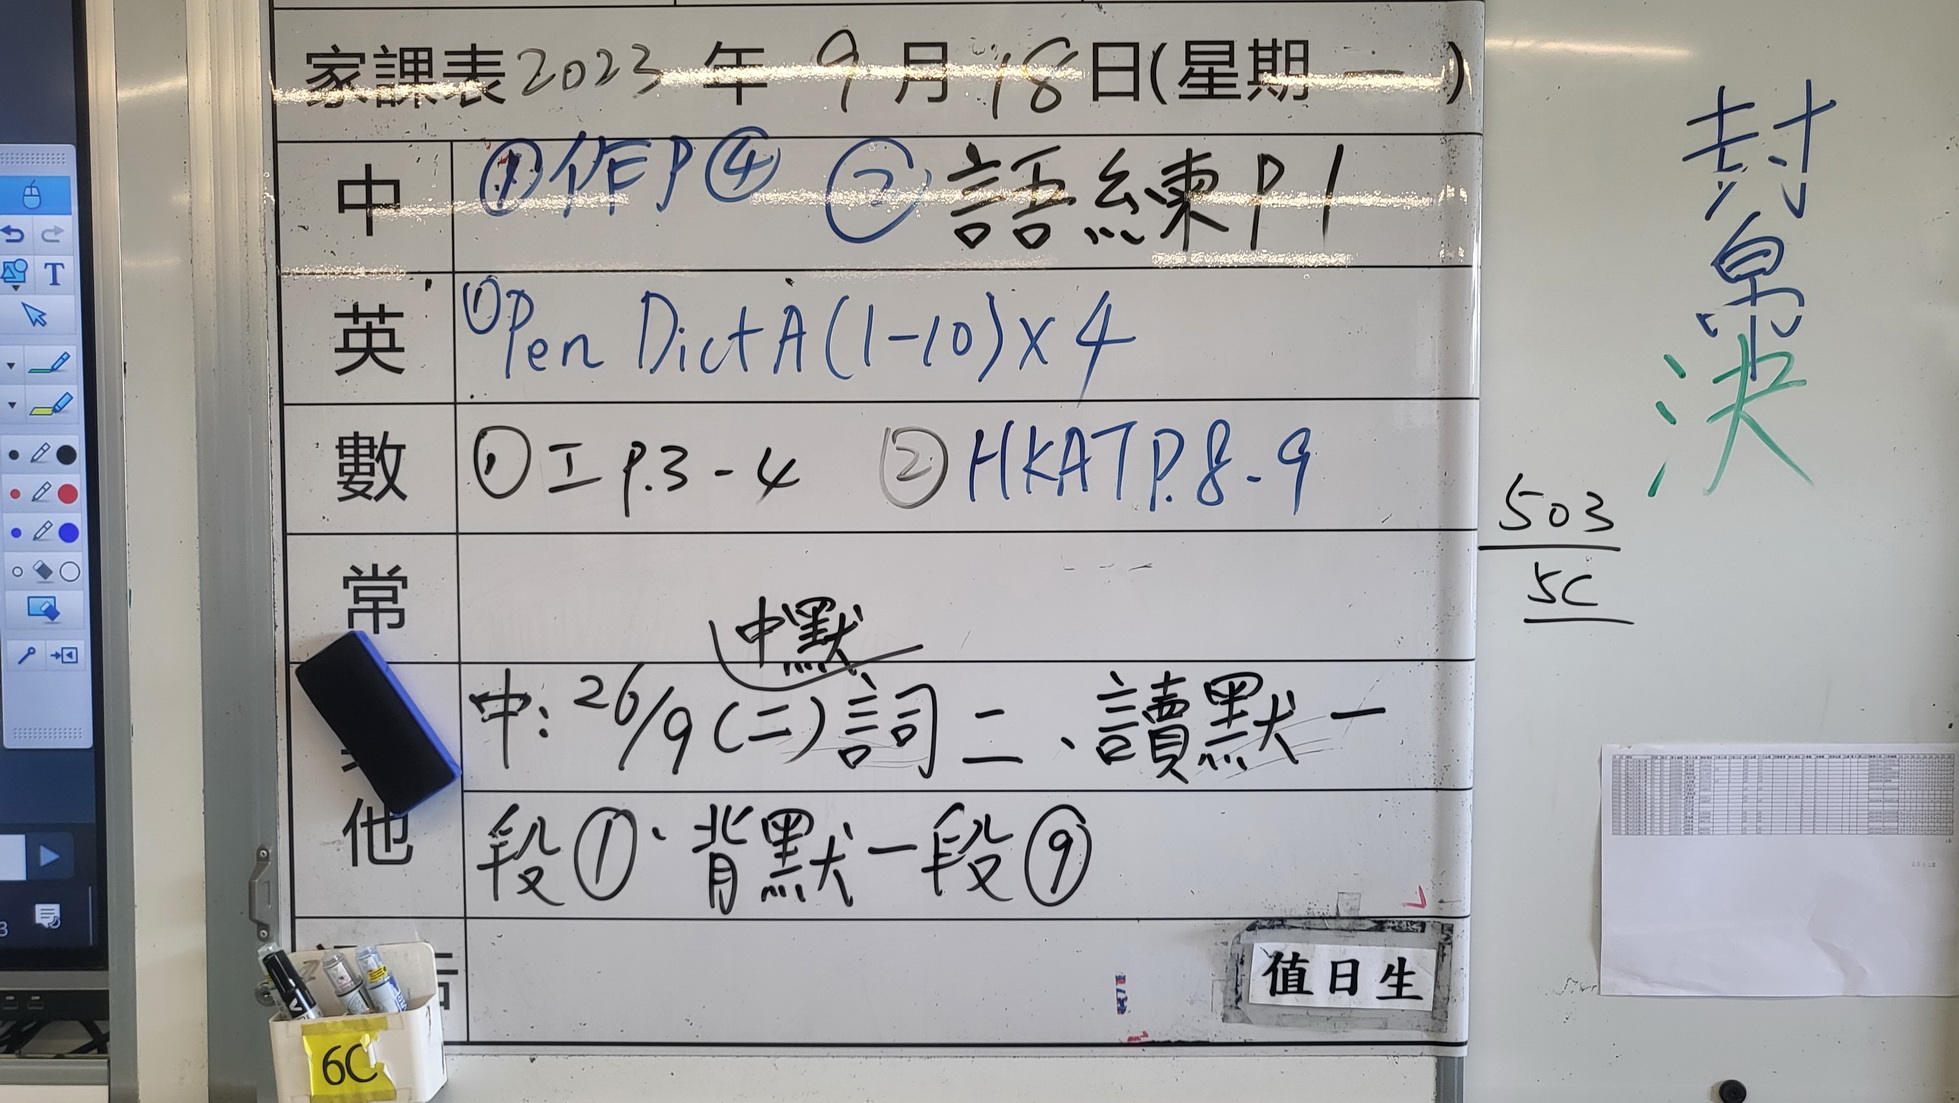 家課表2023年9月18日(星期一)
中 ①作P④ ②語練P1
英 ①Pen Dict A(1-10)x4
數 ①工P.3-4 ②HKATP.8-9
常
中默
中:26/9(二)詞二、讀默一
他 段①、背默一段⑨
值日生
6C
封
帛
決
503
5C
T